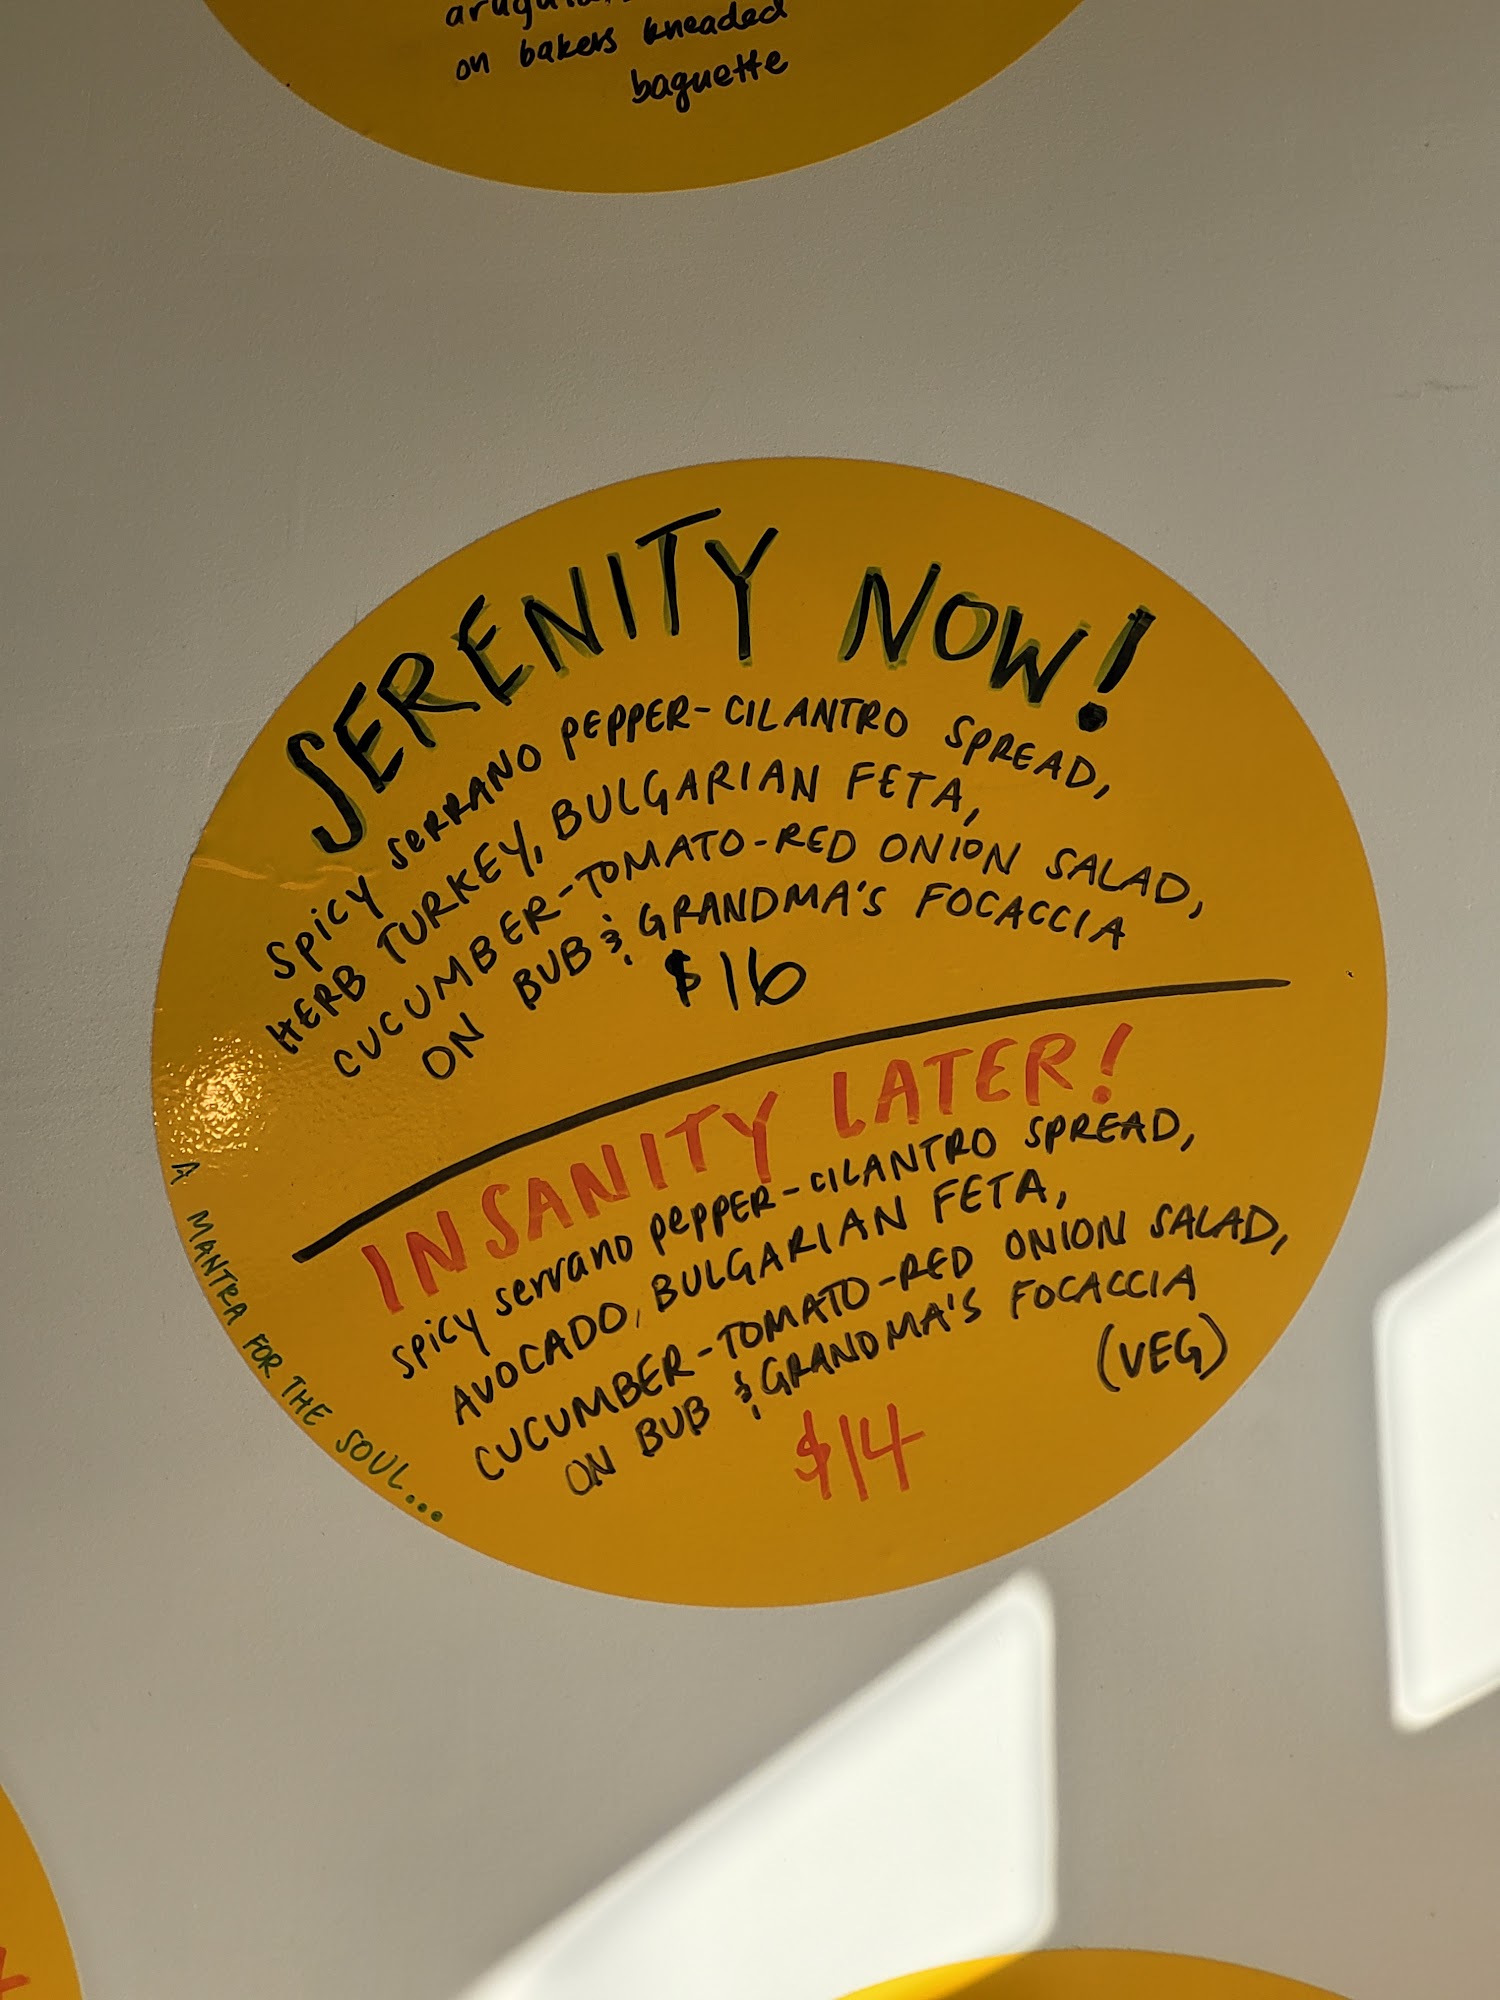 on bakers kneaded
baguette
SERENITY NOW!
SPICY SERRANO PEPPER-CILANTRO SPREAD,
HERB TURKEY, BULGARIAN FETA,
CUCUMBER-TOMATO-RED ONION SALAD,
ON BUB & GRANDMA'S FOCACCIA
$16
INSANITY LATER!
SPICY SERRANO PEPPER-CILANTRO SPREAD,
AVOCADO, BULGARIAN FETA,
CUCUMBER-TOMATO-RED ONION SALAD,
ON BUB & GRANDMA'S FOCACCIA
(VEG)
$14
A MANTRA FOR THE SOUL...